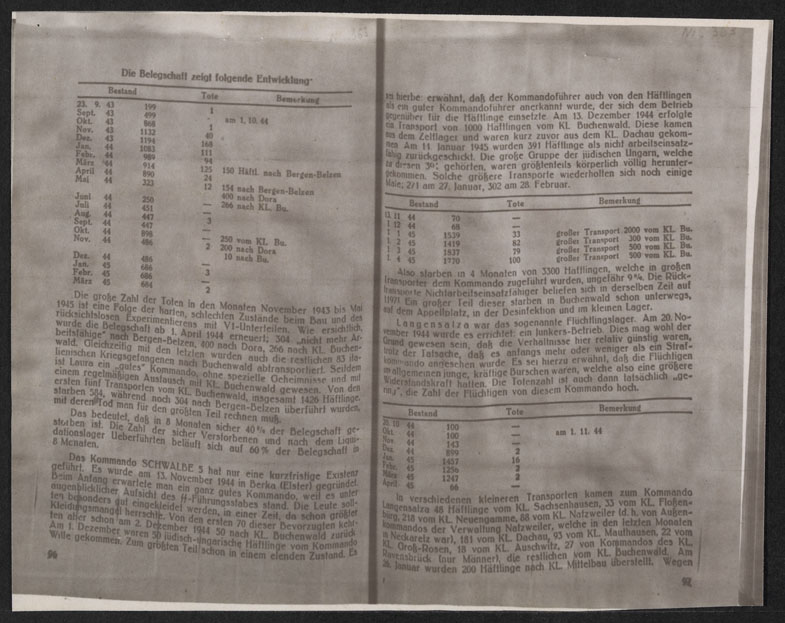 Die Belegschaft zeigt folgende Entwicklung
Bestand Tote Bemerkung
23. 9. 43 199 1
Sept. 43 499
Okt. 43 868 am 1. 10. 44
Nov. 43 1132 1
Dez. 43 1194 40
Jan. 44 1083 168
Febr. 44 989 111
März 44 914 94
April 44 890 125 150 Häftl. nach Bergen-Belzen
Mai 44 323 24
12 154 nach Bergen-Belzen
Juni 44 250 400 nach Dora
Juli 44 451 — 266 nach KL. Bu.
Aug. 44 447 —
Sept. 44 447 3
Okt. 44 898 —
Nov. 44 486 — 250 vom KL. Bu.
2 200 nach Dora
Dez. 44 486 10 nach Bu.
Jan. 45 686 —
Febr. 45 686 3
März 45 684 —
2
Die große Zahl der Toten in den Monaten November 1943 bis Mai
1945 ist eine Folge der harten, schlechten Zustände beim Bau und des
rücksichtslosen Experimentierens mit V1-Unterteilen. Wie ersichtlich,
wurde die Belegschaft ab 1. April 1944 erneuert; 304 „nicht mehr Ar-
beitsfähige" nach Bergen-Belzen, 400 nach Dora, 266 nach KL. Buchen-
wald. Gleichzeitig mit den letzten wurden auch die restlichen 83 ita-
lienischen Kriegsgefangenen nach Buchenwald abtransportiert. Seitdem
ist Laura ein „gutes" Kommando, ohne spezielle Geheimnisse und mit
einem regelmäßigen Austausch mit KL. Buchenwald gewesen. Von den
ersten fünf Transporten vom KL. Buchenwald, insgesamt 1426 Häftlinge,
starben 584, während noch 304 nach Bergen-Belzen überführt wurden,
mit deren Tod man für den größten Teil rechnen muß.
Das bedeutet, daß in 8 Monaten sicher 40% der Belegschaft ge-
storben ist. Die Zahl der sicher Verstorbenen und nach dem Liqui-
dationslager Ueberführten beläuft sich auf 60% der Belegschaft in
8 Monaten.
Das Kommando SCHWALBE 5 hat nur eine kurzfristige Existenz
geführt. Es wurde am 13. November 1944 in Berka (Elster) gegründet.
Beim Anfang erwartete man ein ganz gutes Kommando, weil es unter
augenblicklicher Aufsicht des ᛋᛋ-Führungsstabes stand. Die Leute soll-
ten besonders gut eingekleidet werden, in einer Zeit, da schon größter
Kleidungsmangel herrschte. Von den ersten 70 dieser Bevorzugten kehr-
ten aber schon am 2. Dezember 1944 50 nach KL. Buchenwald zurück.
Am 1. Dezember waren 50 jüdisch-ungarische Häftlinge vom Kommando
Wille gekommen. Zum größten Teil schon in einem elenden Zustand. Es
96
sei hierbei erwähnt, daß der Kommandoführer auch von den Häftlingen
als ein guter Kommandoführer anerkannt wurde, der sich dem Betrieb
gegenüber für die Häftlinge einsetzte. Am 13. Dezember 1944 erfolgte
ein Transport von 1000 Häftlingen vom KL. Buchenwald. Diese kamen
aus dem Zeltlager und waren kurz zuvor aus dem KL. Dachau gekom-
men. Am 11. Januar 1945 wurden 391 Häftlinge als nicht arbeitseinsatz-
fähig zurückgeschickt. Die große Gruppe der jüdischen Ungarn, welche
zu diesen gehörten, waren größtenteils körperlich völlig herunter-
gekommen. Solche größere Transporte wiederholten sich noch einige
Male; 271 am 27. Januar, 302 am 28. Februar.
Bestand Tote Bemerkung
13. 11 44 70 —
1 12 44 68 —
1 1 45 1539 33 großer Transport 2000 vom KL. Bu.
1 2 45 1419 82 großer Transport 300 vom KL. Bu.
1 3 45 1837 79 großer Transport 500 vom KL. Bu.
1 4 45 1770 100 großer Transport 500 vom KL. Bu.
Also starben in 4 Monaten von 3300 Häftlingen, welche in großen
Transporten dem Kommando zugeführt wurden, ungefähr 9%. Die Rück-
transporte Nichtarbeitseinsatzfähiger beliefen sich in derselben Zeit auf
1197. Ein großer Teil dieser starben in Buchenwald schon unterwegs,
auf dem Appellplatz, in der Desinfektion und im kleinen Lager.
Langensalza war das sogenannte Flüchtlingslager. Am 20. No-
vember 1944 wurde es errichtet: ein Junkers-Betrieb. Dies mag wohl der
Grund gewesen sein, daß die Verhältnisse hier relativ günstig waren,
trotz der Tatsache, daß es anfangs mehr oder weniger als ein Straf-
kommando angesehen wurde. Es sei hierzu erwähnt, daß die Flüchtigen
im allgemeinen junge, kräftige Burschen waren, welche also eine größere
Widerstandskraft hatten. Die Totenzahl ist auch dann tatsächlich „ge-
ring", die Zahl der Flüchtigen von diesem Kommando hoch.
Bestand Tote Bemerkung
20. 10 44 100 —
Okt. 44 100 — am 1. 11. 44
Nov. 44 143 —
Dez. 44 899 2
Jan. 45 1457 16
Febr. 45 1256 2
März 45 1247 2
April 45 66 —
In verschiedenen kleineren Transporten kamen zum Kommando
Langensalza 48 Häftlinge vom KL. Sachsenhausen, 33 vom KL. Floßen-
bürg, 218 vom KL. Neuengamme, 88 vom KL. Natzweiler (d. h. von Außen-
kommandos der Verwaltung Natzweiler, welche in den letzten Monaten
in Neckarelz war), 181 vom KL. Dachau, 93 vom KL. Mauthausen, 22 vom
KL. Groß-Rosen, 18 vom KL. Auschwitz, 27 von Kommandos des KL.
Ravensbrück (nur Männer), die restlichen vom KL. Buchenwald. Am
26. Januar wurden 200 Häftlinge nach KL. Mittelbau überstellt. Wegen
97